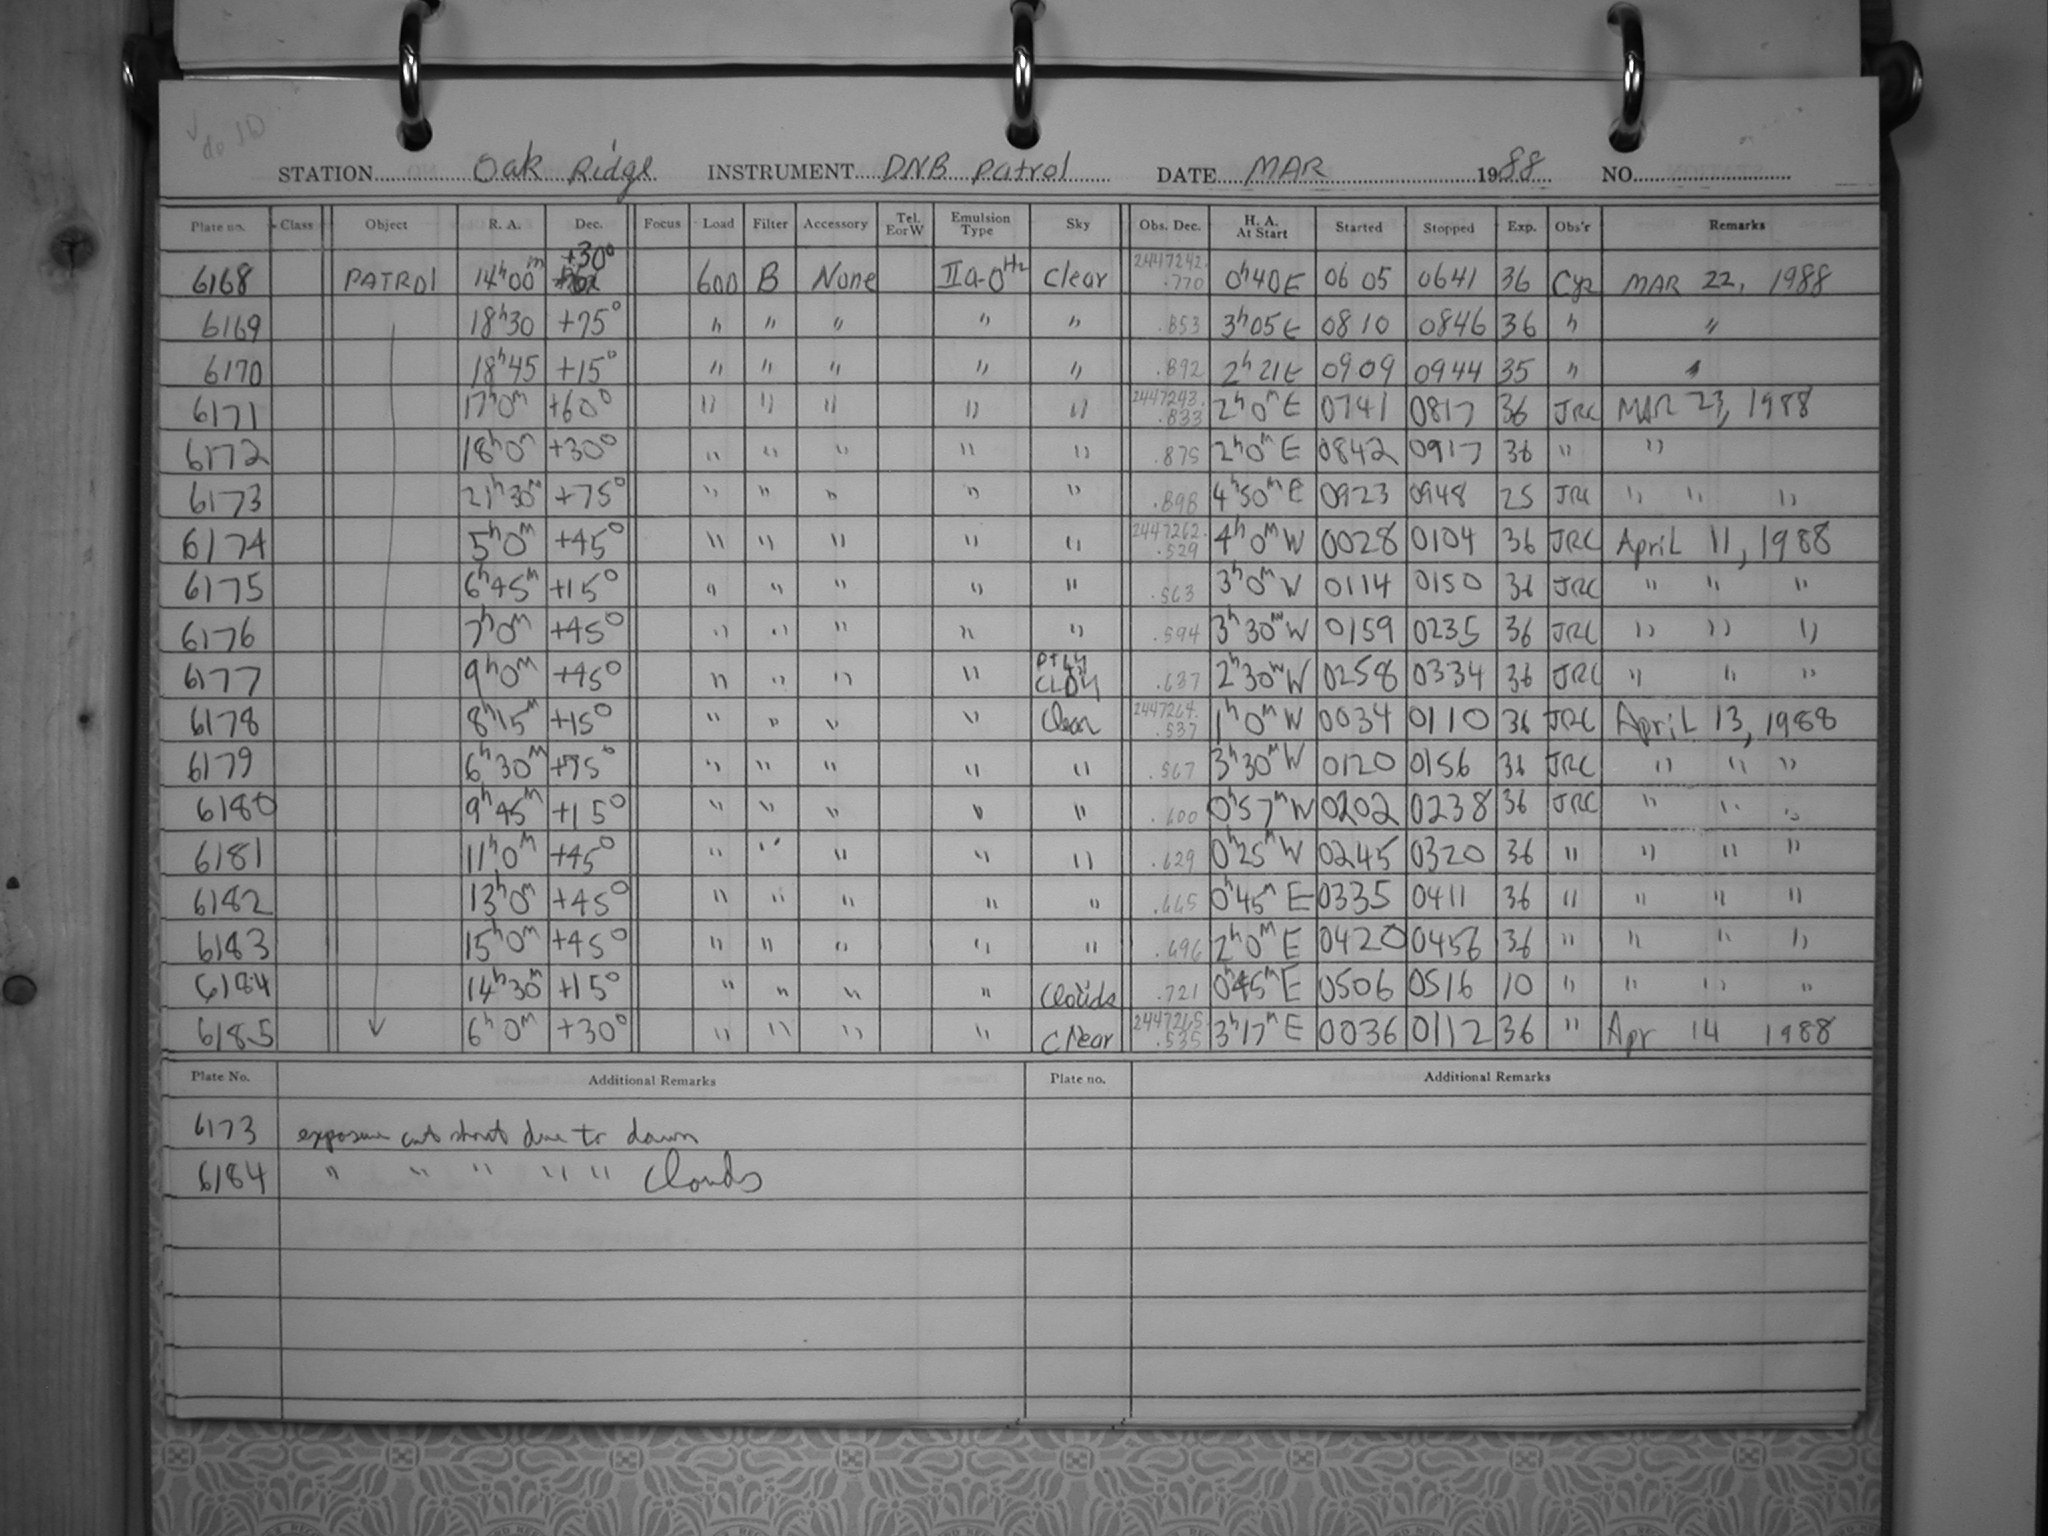 do JD
STATION Oak Ridge INSTRUMENT DNB patrol DATE MAR 1988 NO.
Plate no. Class Object R. A. Dec. Focus Load Filter Accessory Tel. E or W Emulsion Type Sky Obs. Dec. H. A. At Start Started Stopped Exp. Obs'r Remarks
6168 PATROL 14h00m +30° 600 B None IIa-O Hz Clear 2447242.770 0h40E 0605 0641 36 Cyr MAR 22, 1988
6169 18h30 +75° " " " " " .853 3h05E 0810 0846 36 " "
6170 18h45 +15° " " " " " .892 2h21E 0909 0944 35 " "
6171 17h0m +60° " " " " " 2447243.833 2h0mE 0741 0817 36 JRC MAR 23, 1988
6172 18h0m +30° " " " " " .875 2h0mE 0842 0917 36 " "
6173 21h30m +75° " " " " " .898 4h50mE 0923 0948 25 JRC " " "
6174 5h0m +45° " " " " " 2447262.529 4h0mW 0028 0104 36 JRC April 11, 1988
6175 6h45m +15° " " " " " .563 3h0mW 0114 0150 36 JRC " " "
6176 7h0m +45° " " " " " .594 3h30mW 0159 0235 36 JRC " " "
6177 9h0m +45° " " " " PTLY CLDY .637 2h30mW 0258 0334 36 JRC " " "
6178 8h15m +15° " " " " Clear 2447264.537 1h0mW 0034 0110 36 JRC April 13, 1988
6179 6h30m +75° " " " " " .567 3h30mW 0120 0156 36 JRC " " "
6180 9h45m +15° " " " " " .600 0h57mW 0202 0238 36 JRC " " "
6181 11h0m +45° " " " " " .629 0h25mW 0245 0320 36 " " " "
6182 13h0m +45° " " " " " .665 0h45mE 0335 0411 36 " " " "
6183 15h0m +45° " " " " " .696 2h0mE 0420 0456 36 " " " "
6184 14h30m +15° " " " " Clouds .721 0h45mE 0506 0516 10 " " " "
6185 6h0m +30° " " " " Clear 2447265.535 3h17mE 0036 0112 36 " Apr 14 1988
Plate No. Additional Remarks Plate no. Additional Remarks
6173 exposure cut short due to dawn
6184 " " " " " Clouds